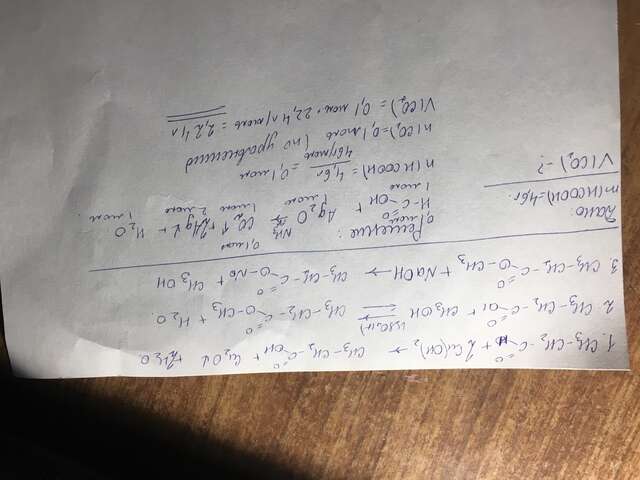 1. CH₃-CH₂-C(=O)-H + 2Cu(OH)₂ → CH₃-CH₂-C(=O)-OH + Cu₂O↓ + 2H₂O.
2. CH₃-CH₂-C(=O)-OH + CH₃OH ⇌ H₂SO₄(к) CH₃-CH₂-C(=O)-O-CH₃ + H₂O.
3. CH₃-CH₂-C(=O)-O-CH₃ + NaOH → CH₃-CH₂-C(=O)-O-Na + CH₃OH
Дано:
m(HCOOH)=4,6г.
V(CO₂) -?
Решение:
0,1моль 0,1моль
H-C(=O)-OH + Ag₂O NH₃→ CO₂↑ + 2Ag↓ + H₂O
1моль 1моль 1моль 2моль 1моль
n(HCOOH) = 4,6г / 46г/моль = 0,1моль
n(CO₂)=0,1моль (по уравнению)
V(CO₂) = 0,1 моль · 22,4 л/моль = 2,24л